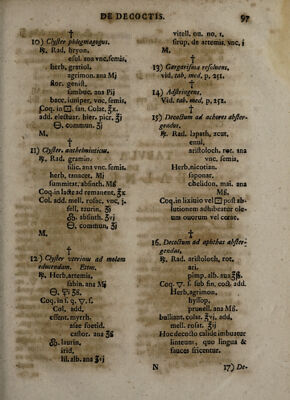 DE DECOCTIS. 97
†
10) Clyster phlegmagogus.
℞. Rad. bryon.
esul. ana vnc. semis,
herb. gratiol.
agrimon. ana Mj
flor. genist.
sambuc. ana Pij
bacc. iuniper. vnc. semis,
Coq. in 🝕. sm. Colat. ℥x.
add. electuar. hier. picr. ℥j
🜔. commun. ʒj
M.
†
11) Clyster. anthelminticus.
℞. Rad. gramin.
filic. ana vnc. semis.
herb. tanacet. Mj
summitat. absinth. Mß
Coq. in lacte ad remanent. ℥x
Col. add. mell. rosac. vnc. j.
fell. taurin. ʒß
absinth. ʒvj
🜔. commun. ʒj
M.
†
12) Clyster vterinus ad molam
educendam. Etm.
℞. Herb. artemis.
sabin. ana Mj
Coq. in s. q. ▽. s.
Col. add.
essent. myrrh.
asae foetid.
castor. ana ʒß
laurin.
irid.
lil. alb. ana ʒvj
vitell. ou. no. 1.
sirup. de artemis. vnc. j
M.
†
13) Gargarisma resoluens,
vid. tab. med. p. 251.
†
14) Adstringens.
Vid. tab. med. p. 252.
†
15) Decoctum ad achores abster-
gendos.
℞. Rad. lapath. acut.
enul.
aristoloch. rot. ana
vnc. semis,
Herb. nicotian.
saponar.
chelidon. mai. ana
Mß
Coq. in lixiuio vel post ab-
lutionem adhibeatur ole-
um ouorum vel cerae.
†
16. Decoctum ad aphthas abster-
gendas.
℞. Rad. aristoloch. rot.
ari.
pimp. alb. ana ʒß.
Coq. ▽. s. sub fin. coct. add.
Herb. agrimon.
hyssop.
prunell. ana Mß.
bulliant. colat. ℥vj. add.
mell. rosat. ℥ij
Hoc decocto calide imbuatur
linteum, quo lingua &
fauces fricentur.
N 17) De-